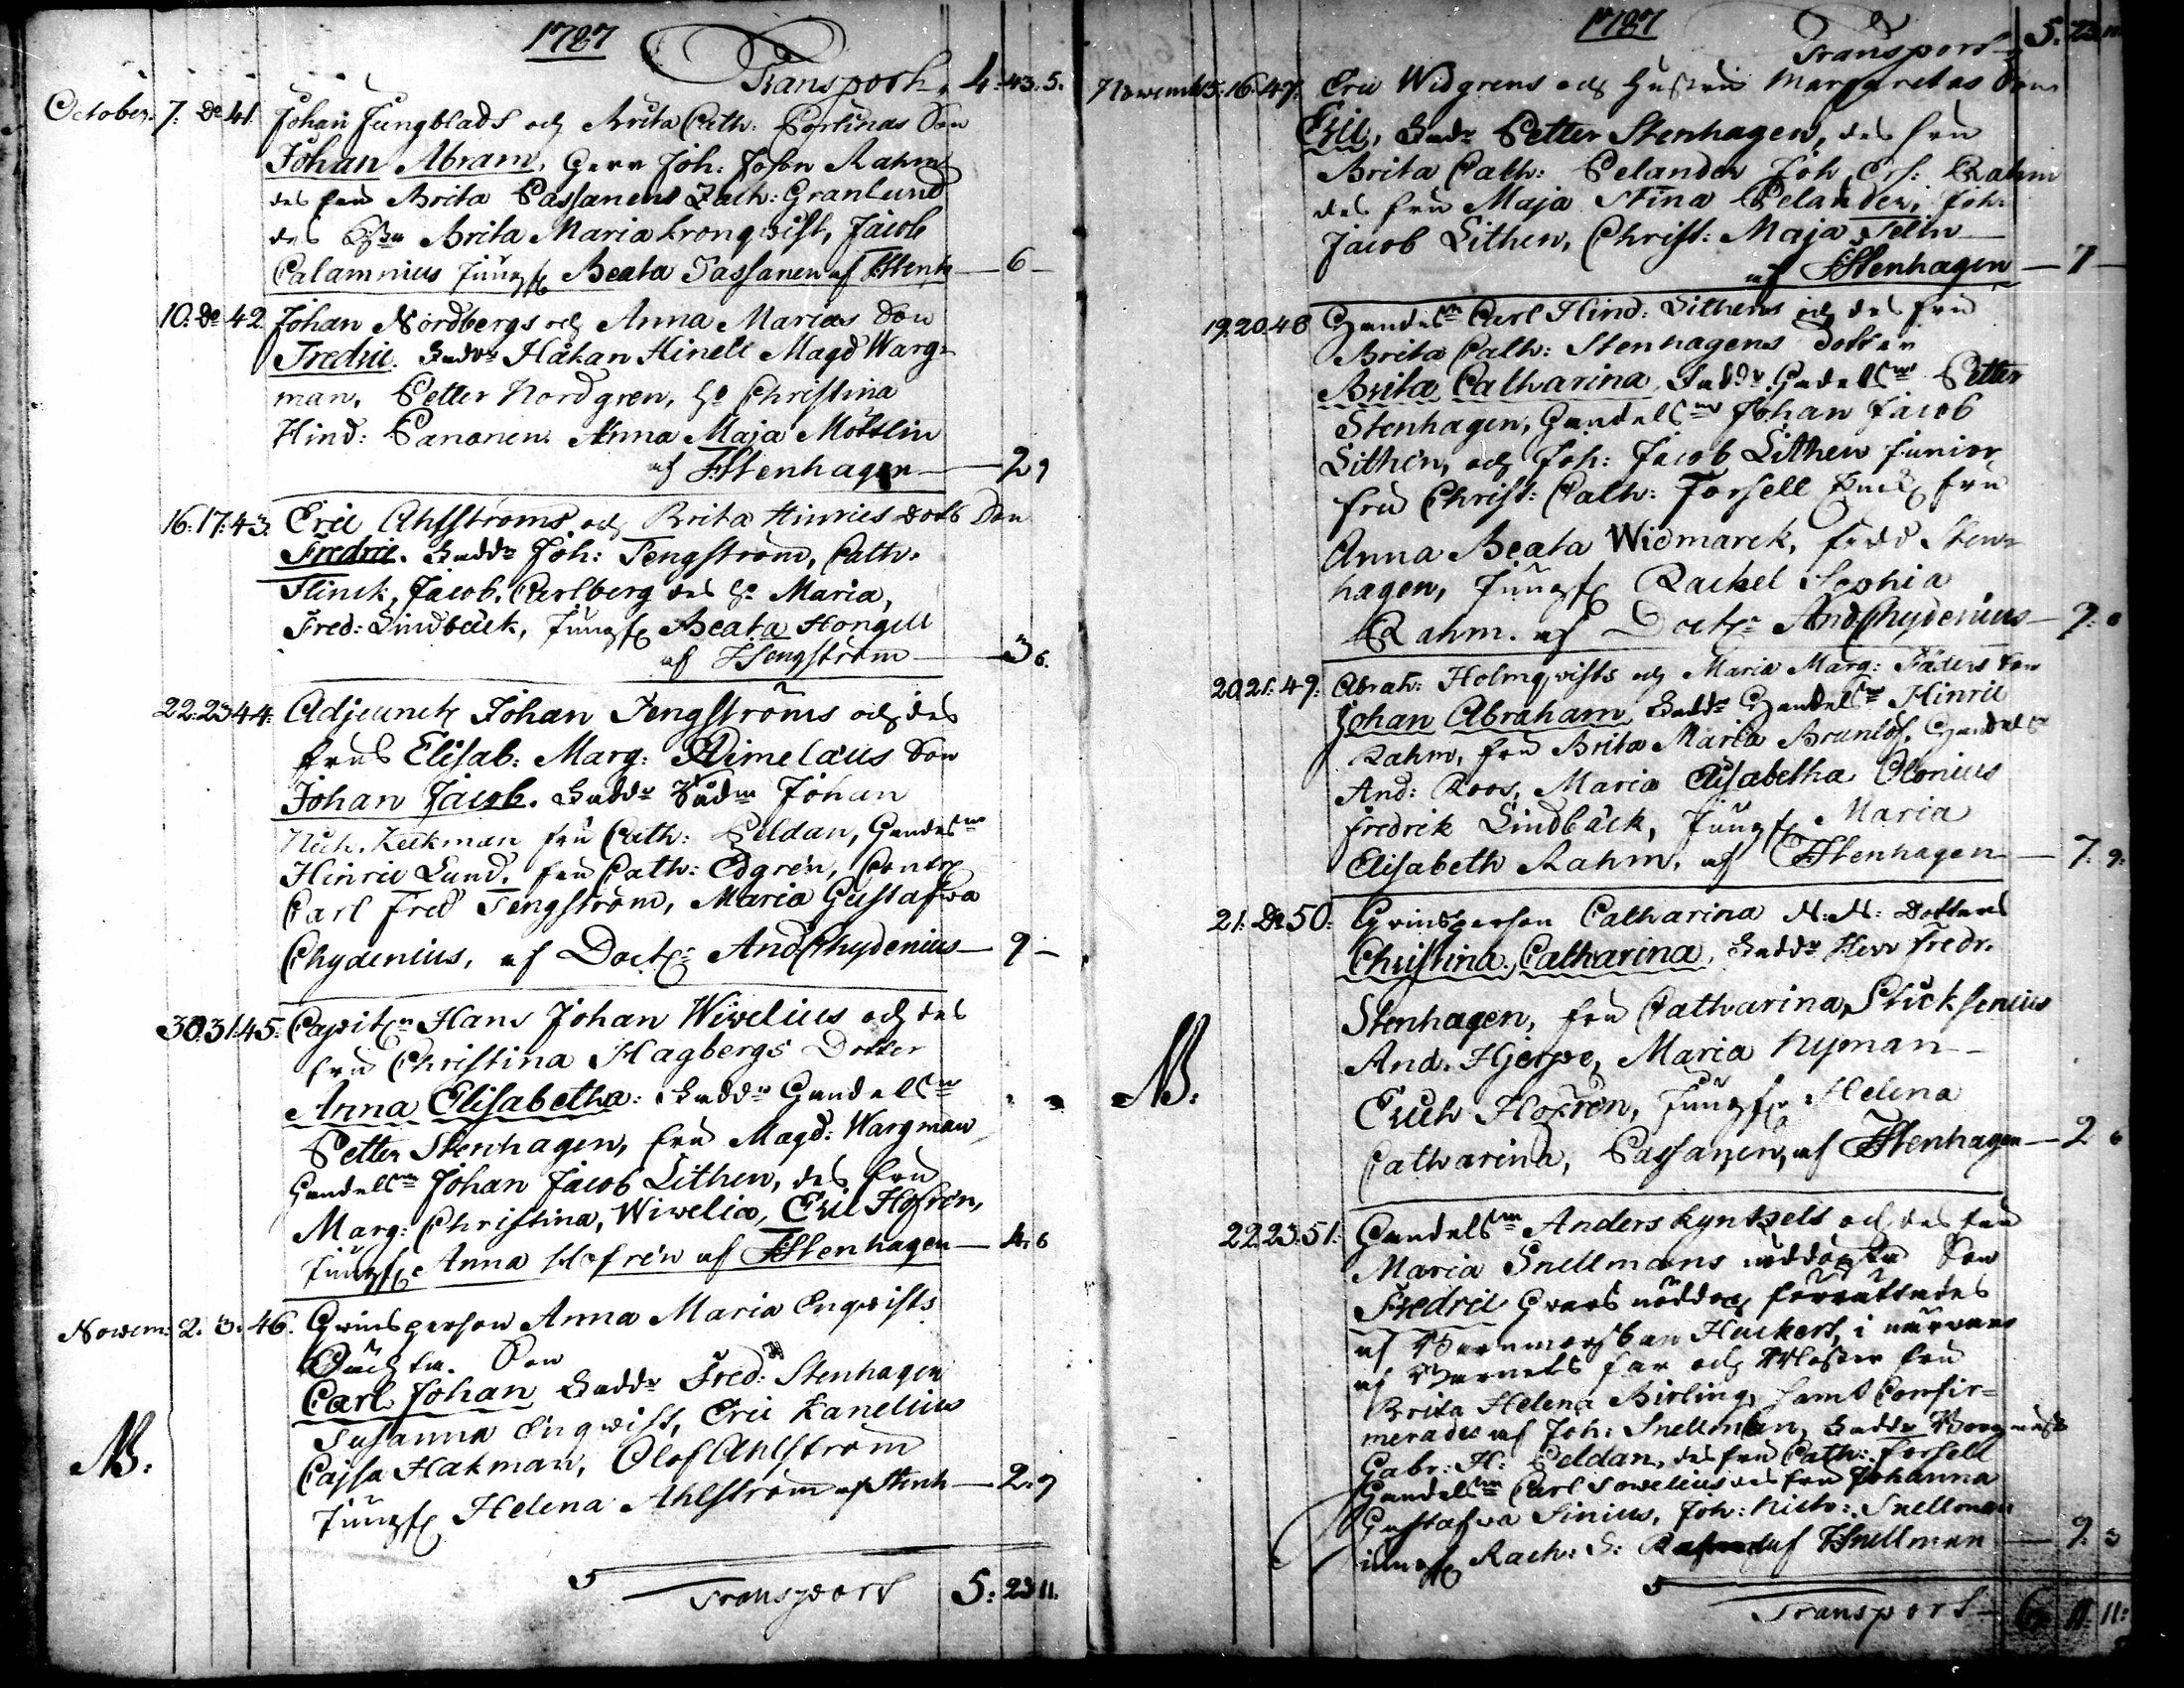 1787
Transport. 4. 43. 5.
October. 7. Do 41. Johan Jungblads och Brita Cath: Portinas Son
Johan Abram, Herr Joh: Rahm
des fru Brita Passanens Zach: Granlund
des Brita Maria Kronqvist, Jacob
Calamnius Jungf Beata Passanen af FStenh — 6 —
10. Do 42. Johan Nordbergs och Anna Marias Son
Fredric. Fadd: Håkan Kinell Magd Warg-
man, Petter Nordgren, Ho Christina
Hind: Pananen. Anna Maja Möttlin
af FStenhagen — 29
16. 17. 43. Eric Ahlströms och Brita Hinrics dotr Son
Fredric. Fadd: Joh: Tengström, Cath:
Flinck, Jacob Carlberg des Ho Maria,
Fred: Lindbäck, Jungf Beata Hongell
af JTengström — 3 6.
22. 23 44. Adjunct Johan Tengströms och des
frus Elisab: Marg: Aimelæus Son
Johan Jacob. Fadd: Rådm Johan
Nich. Keckman fru Cath: Peldan, Handelsm
Hinric Lund, fru Cath: Edgrén,
Carl Fred Tengström, Maria Gustafwa
Chydenius, af Doct: And Chydenius — 9 —
30. 31. 45. Capit: Hans Johan Wivelius och des
fru Christina Hagbergs Dotter
Anna Elisabetha: Fadd: Handelsm
Petter Stenhagen, fru Magd: Wargman
Handelsm Johan Jacob Lithen, des fru
Marg: Christina, Wivelia, Eric Hofrén,
Jungf: Anna Hofrén af FStenhagen — 4. 6
Novem: 2. 3. 46. Qvinsperson Anna Maria Enqvists
Son
Carl Johan Fadd: Fred: Stenhagen
Susanna Enqvist, Eric Kanelius
NB: Cajsa Hakman, Olof Ahlström
Jungf Helena Ahlström af Stenh — 2. 9
Transport 5: 23 11.
1787
Transport 5. 23. 11
Novemb 15. 16. 47. Eric Widgrens och hustru Margaretas Son
Eric, Fadd: Petter Stenhagen, des fru
Brita Cath: Pelander Joh Ers: Rahm
des fru Maja Stina Pelander, Joh:
Jacob Lithen, Christ: Maja Telin
af FStenhagen — 7 —
19. 20. 48 Handelsm Carl Hind: Lithens och des fru
Brita Cath: Stenhagens dotter
Brita Catharina, Fadd: Handelsm Petter
Stenhagen, Handelsm Johan Jacob
Lithén, och Joh: Jacob Lithen junior
fru Christ: Cath: Forsell fru
Anna Beata Widmarck, född Sten-
hagen, Jungf Rachel Sophia
Rahm. af Doct: And Chydenius — 9: 6
20. 21: 49: Abrah: Holmqvists och Maria Marg: Fäders Son
Johan Abraham Fadd: Handelsm Hinric
Rahm, fru Brita Maria Brunlöf, Handelsm
And: Roos, Maria Elisabetha Clonius
Fredrik Lindbäck, Jungf Maria
Elisabeth Rahm, af FStenhagen — 7. 9.
21: Do 50: Qvinsperson Catharina N: N: Dotters
Christina Catharina, Fadd: Herr Fredr.
Stenhagen, fru Catharina Stucksenius
NB: And. Hjerpe, Maria Nyman —
Erich Hofrén, Jungf Helena
Catharina, Passanen, af FStenhagen — 2 6
22. 23. 51. Handelsm Anders Kyntzels och des fru
Maria Snellmans nöddöpta Son
Fredric Hvars nöddop förrättades
af Barnmorskan Huckert, i närvaro
af Barnets far och Moster fru
Brita Helena Birling, samt Confir-
merades af Joh: Snellman, Fadd: Borgmäst
Gabr: H: Peldan, des fru Cath: Forsell
Handelsm Carl Sovelius des fru Johanna
Gustafva Sinius, Joh: Nich: Snellman
Jungf Rach: S: Rahm af JSnellman — 9. 3
Transport 6. 11. 11: